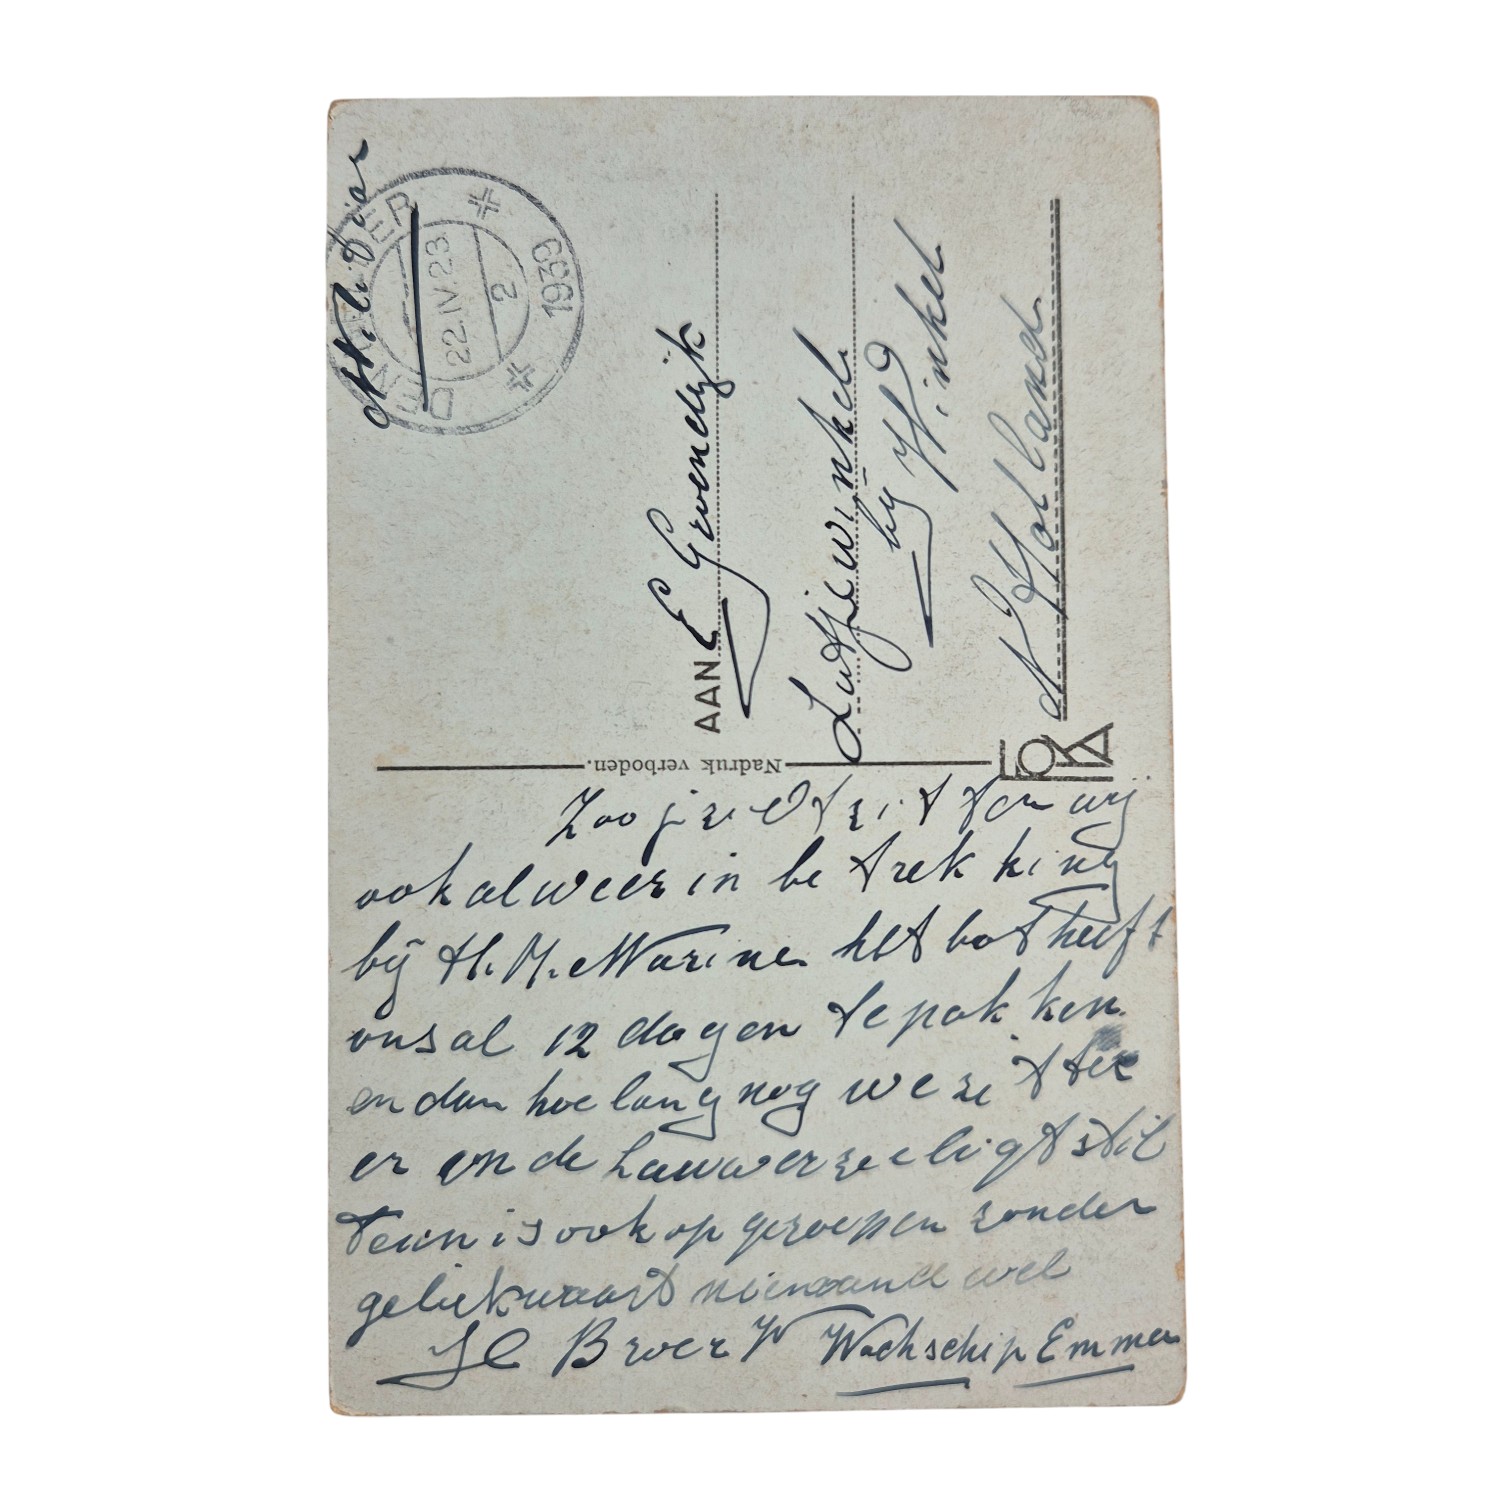 Militair
DEN HELDER
22.IV.23
2
1939
AAN E Groendijk
Lutjewinkel
by Winkel
N Holland
Nadruk verboden.
FOKA
Zoo je ziet zitten wij
ook al weer in betrekking
bij H. M. Marine het bot heeft
ons al 12 dagen te pakken
en dan hoe lang nog we zitten
er on de Lauwerzee ligt stil
Teun is ook op geroepen zonder
geliek waart niemand wel
Je Broer W Wachschip Emma